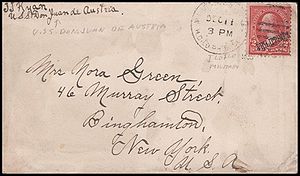 JJ Ryan
U.S.S. Don Juan de Austria
U.S.S. DON JUAN OF AUSTRIA
DEC 11
3 PM
ILOILO
MILITARY
Mrs Nora Green
46 Murray Street.
Binghamton,
New York
U.S.A